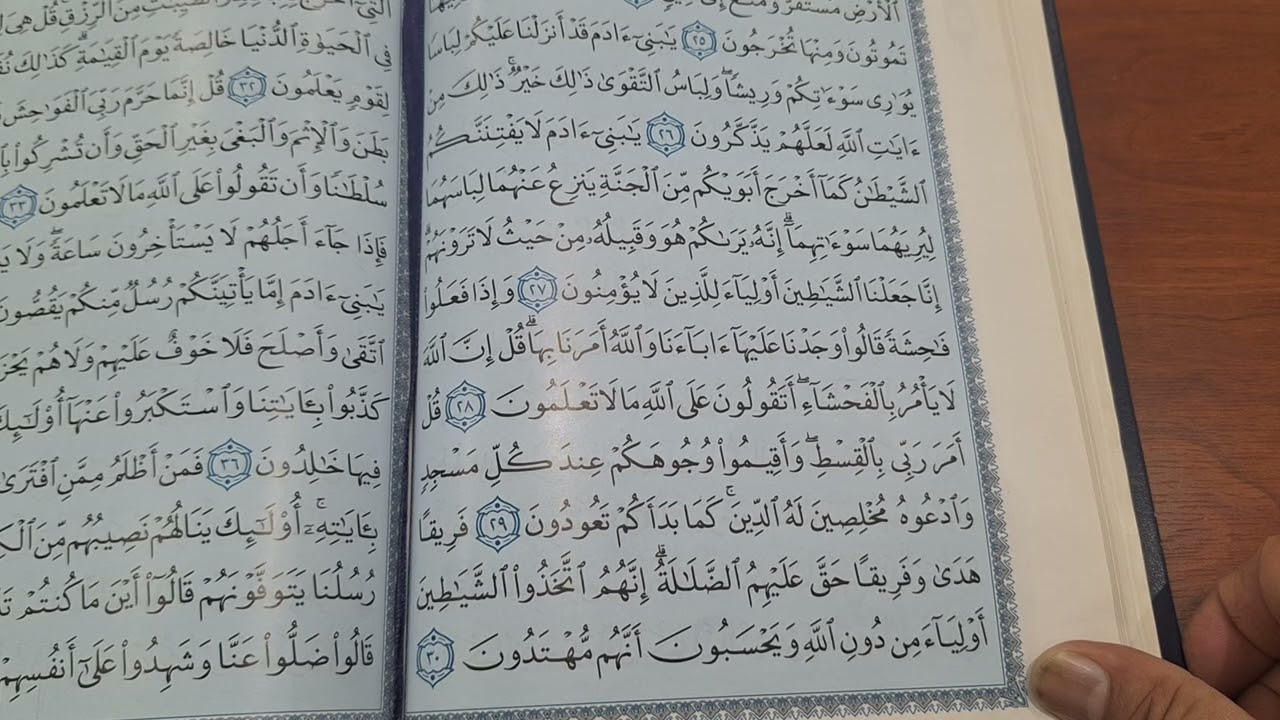 ٱلْأَرْضِ مُسْتَقَرٌّ وَمَتَٰعٌ إِلَىٰ
تَمُوتُونَ وَمِنْهَا تُخْرَجُونَ ٢٥ يَٰبَنِىٓ ءَادَمَ قَدْ أَنزَلْنَا عَلَيْكُمْ لِبَاسًا
يُوَٰرِى سَوْءَٰتِكُمْ وَرِيشًا ۖ وَلِبَاسُ ٱلتَّقْوَىٰ ذَٰلِكَ خَيْرٌ ۚ ذَٰلِكَ مِنْ
ءَايَٰتِ ٱللَّهِ لَعَلَّهُمْ يَذَّكَّرُونَ ٢٦ يَٰبَنِىٓ ءَادَمَ لَا يَفْتِنَنَّكُمُ
ٱلشَّيْطَٰنُ كَمَآ أَخْرَجَ أَبَوَيْكُم مِّنَ ٱلْجَنَّةِ يَنزِعُ عَنْهُمَا لِبَاسَهُمَا
لِيُرِيَهُمَا سَوْءَٰتِهِمَآ ۗ إِنَّهُۥ يَرَىٰكُمْ هُوَ وَقَبِيلُهُۥ مِنْ حَيْثُ لَا تَرَوْنَهُمْ ۗ
إِنَّا جَعَلْنَا ٱلشَّيَٰطِينَ أَوْلِيَآءَ لِلَّذِينَ لَا يُؤْمِنُونَ ٢٧ وَإِذَا فَعَلُوا۟
فَٰحِشَةً قَالُوا۟ وَجَدْنَا عَلَيْهَآ ءَابَآءَنَا وَٱللَّهُ أَمَرَنَا بِهَا ۗ قُلْ إِنَّ ٱللَّهَ
لَا يَأْمُرُ بِٱلْفَحْشَآءِ ۖ أَتَقُولُونَ عَلَى ٱللَّهِ مَا لَا تَعْلَمُونَ ٢٨ قُلْ
أَمَرَ رَبِّى بِٱلْقِسْطِ ۖ وَأَقِيمُوا۟ وُجُوهَكُمْ عِندَ كُلِّ مَسْجِدٍ
وَٱدْعُوهُ مُخْلِصِينَ لَهُ ٱلدِّينَ ۚ كَمَا بَدَأَكُمْ تَعُودُونَ ٢٩ فَرِيقًا
هَدَىٰ وَفَرِيقًا حَقَّ عَلَيْهِمُ ٱلضَّلَٰلَةُ ۗ إِنَّهُمُ ٱتَّخَذُوا۟ ٱلشَّيَٰطِينَ
أَوْلِيَآءَ مِن دُونِ ٱللَّهِ وَيَحْسَبُونَ أَنَّهُم مُّهْتَدُونَ ٣٠
مِنَ ٱلرِّزْقِ ۚ قُلْ هِىَ
فِى ٱلْحَيَوٰةِ ٱلدُّنْيَا خَالِصَةً يَوْمَ ٱلْقِيَٰمَةِ ۗ كَذَٰلِكَ
لِقَوْمٍ يَعْلَمُونَ ٣٢ قُلْ إِنَّمَا حَرَّمَ رَبِّىَ ٱلْفَوَٰحِشَ
بَطَنَ وَٱلْإِثْمَ وَٱلْبَغْىَ بِغَيْرِ ٱلْحَقِّ وَأَن تُشْرِكُوا۟
سُلْطَٰنًا وَأَن تَقُولُوا۟ عَلَى ٱللَّهِ مَا لَا تَعْلَمُونَ ٣٣
فَإِذَا جَآءَ أَجَلُهُمْ لَا يَسْتَأْخِرُونَ سَاعَةً ۖ وَلَا
يَٰبَنِىٓ ءَادَمَ إِمَّا يَأْتِيَنَّكُمْ رُسُلٌ مِّنكُمْ يَقُصُّونَ
ٱتَّقَىٰ وَأَصْلَحَ فَلَا خَوْفٌ عَلَيْهِمْ وَلَا هُمْ
كَذَّبُوا۟ بِـَٔايَٰتِنَا وَٱسْتَكْبَرُوا۟ عَنْهَآ أُو۟لَٰٓئِكَ
فِيهَا خَٰلِدُونَ ٣٦ فَمَنْ أَظْلَمُ مِمَّنِ ٱفْتَرَىٰ
بِـَٔايَٰتِهِۦٓ ۚ أُو۟لَٰٓئِكَ يَنَالُهُمْ نَصِيبُهُم مِّنَ
رُسُلُنَا يَتَوَفَّوْنَهُمْ قَالُوٓا۟ أَيْنَ مَا كُنتُمْ
قَالُوا۟ ضَلُّوا۟ عَنَّا وَشَهِدُوا۟ عَلَىٰٓ أَنفُسِهِمْ